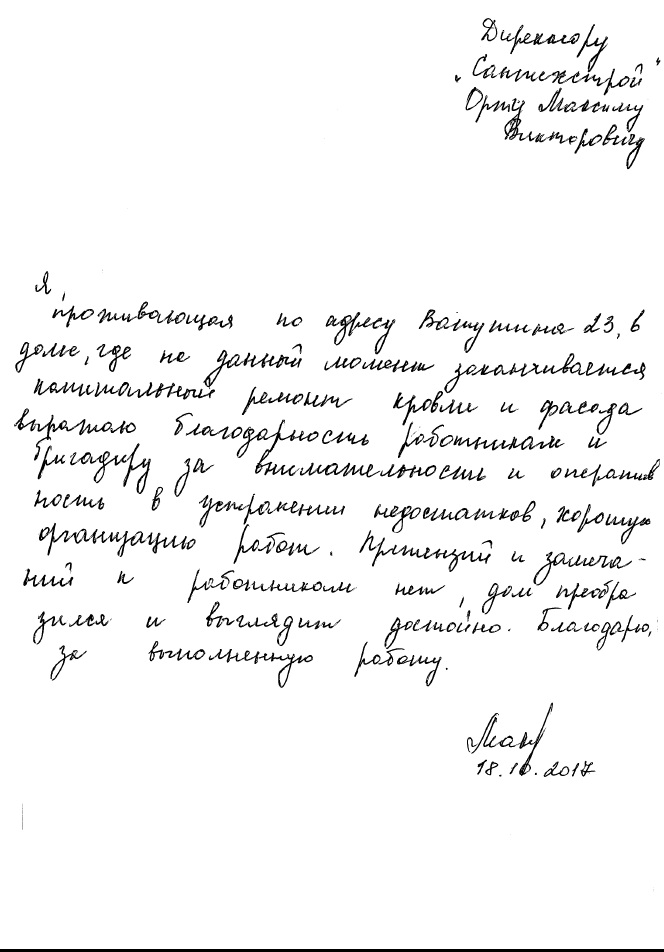 Директору
„Сантехстрой"
Орту Максиму
Викторовичу
Я,
проживающая по адресу Ватутина 23, в
доме, где на данный момент заканчивается
капитальный ремонт кровли и фасада
выражаю благодарность работникам и
бригадиру за внимательность и оператив
ность в устранении недостатков, хорошую
организацию работ. Претензий и замеча-
ний к работникам нет, дом преобра
зился и выглядит достойно. Благодарю,
за выполненную работу.
18.10.2017